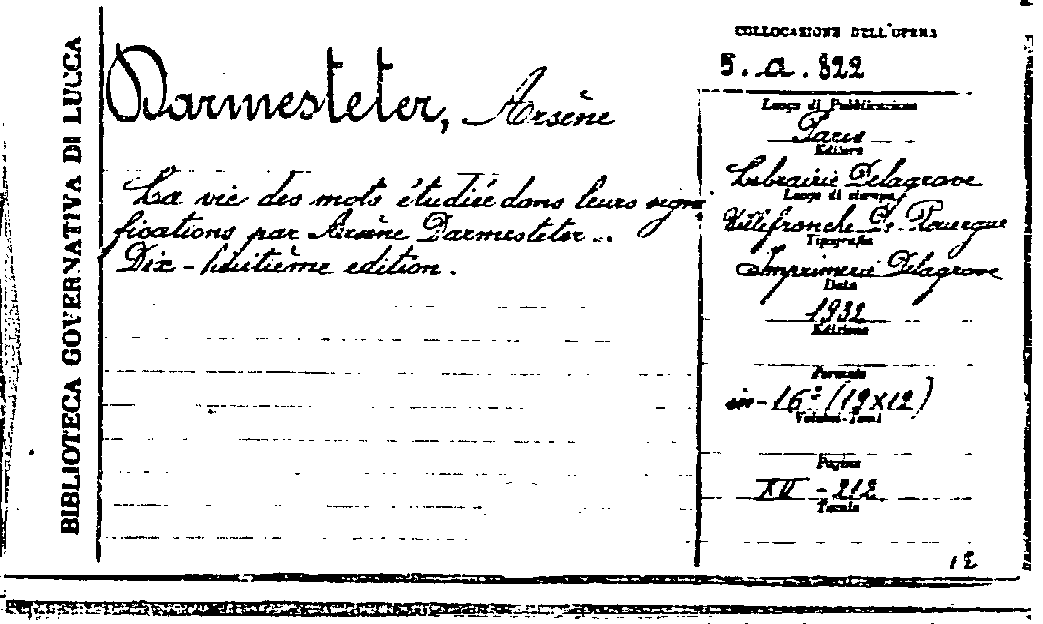 BIBLIOTECA GOVERNATIVA DI LUCCA
Darmesteter, Arsène
La vie des mots étudiée dans leurs signi
fications par Arsène Darmesteter..
Dix-huitième edition.
COLLOCAZIONE DELL'OPERA
5.a.822
Luogo di Pubblicazione
Paris
Editore
Librairie Delagrave
Luogo di stampa
Villefranche De Rouergue
Tipografia
Imprimerie Delagrave
Data
1932
Edizione
Formato
in-16º (19x12)
Volumi-Tomi
Pagine
XII - 212
Tavole
12